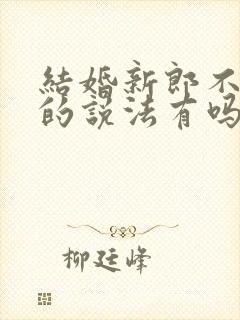 結婚新郎不
的說法有吗
柳廷峰